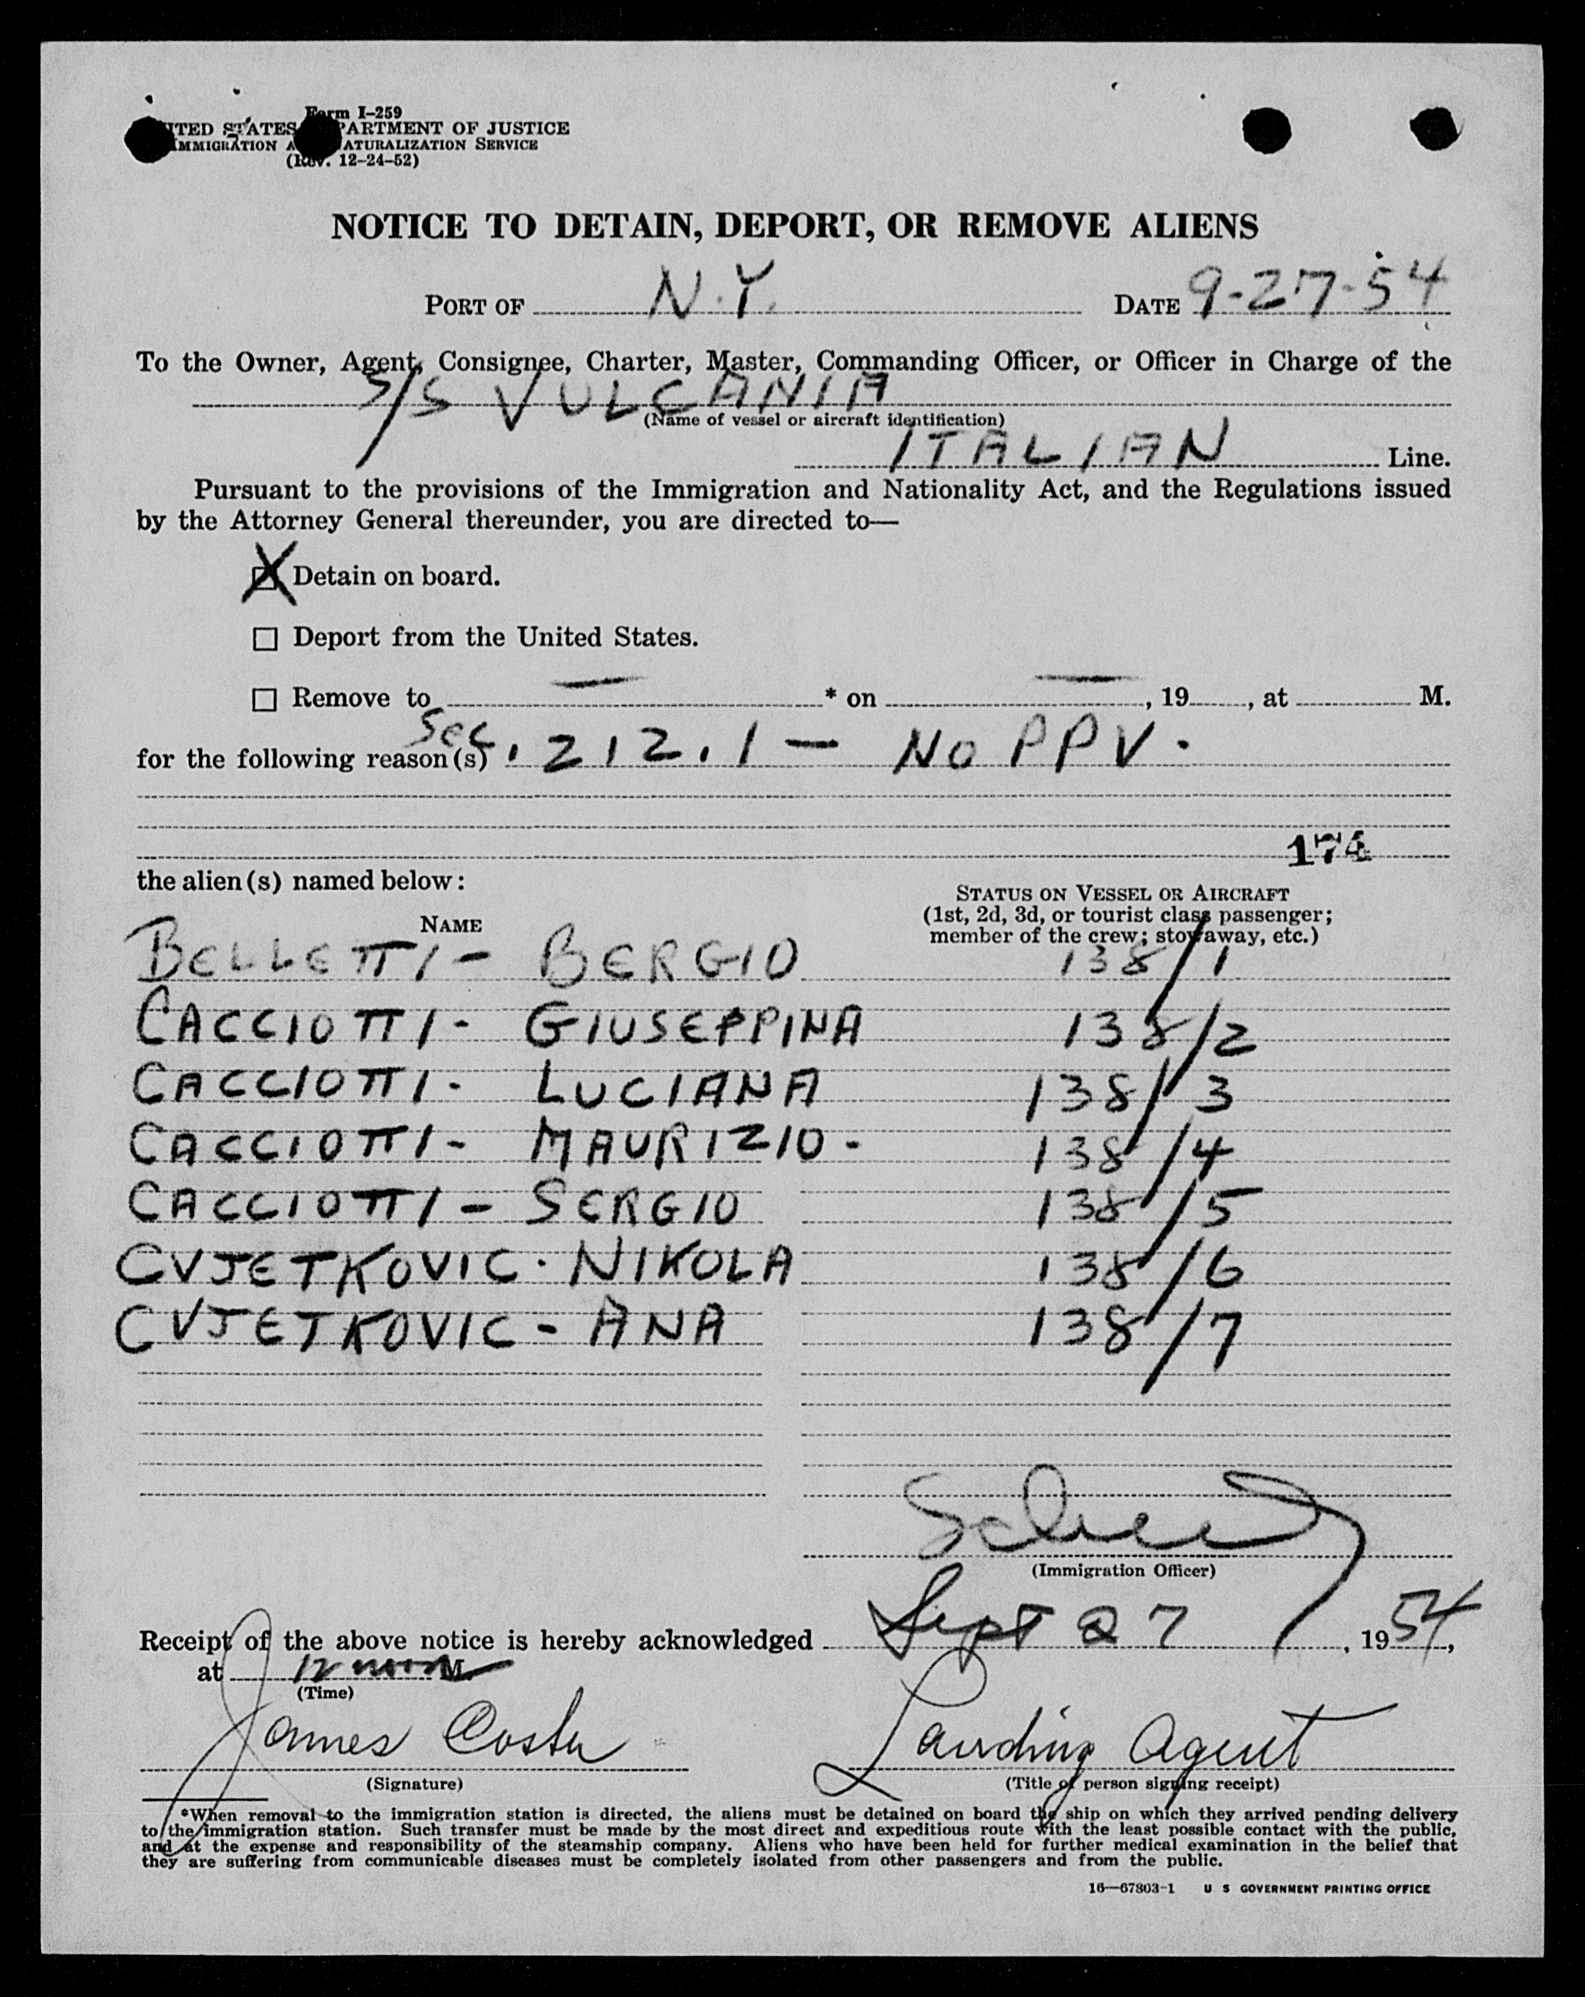 Form I-259
UNITED STATES DEPARTMENT OF JUSTICE
IMMIGRATION AND NATURALIZATION SERVICE
(Rev. 12-24-52)
NOTICE TO DETAIN, DEPORT, OR REMOVE ALIENS
PORT OF N.Y. DATE 9-27-54
To the Owner, Agent, Consignee, Charter, Master, Commanding Officer, or Officer in Charge of the
S/S VULCANIA
(Name of vessel or aircraft identification)
ITALIAN Line.
Pursuant to the provisions of the Immigration and Nationality Act, and the Regulations issued
by the Attorney General thereunder, you are directed to—
X Detain on board.
☐ Deport from the United States.
☐ Remove to — * on — , 19 , at M.
for the following reason(s) Sec. 212.1 — NO PPV.
174
the alien(s) named below:
STATUS ON VESSEL OR AIRCRAFT
(1st, 2d, 3d, or tourist class passenger;
NAME
member of the crew; stowaway, etc.)
BELLETTI - BERGIO 138/1
CACCIOTTI - GIUSEPPINA 138/2
CACCIOTTI - LUCIANA 138/3
CACCIOTTI - MAURIZIO - 138/4
CACCIOTTI - SERGIO 138/5
CVJETKOVIC - NIKOLA 138/6
CVJETKOVIC - ANA 138/7
(Immigration Officer)
Receipt of the above notice is hereby acknowledged Sept 27, 1954,
at 12 noon M.
(Time)
James Coster Landing Agent
(Signature) (Title of person signing receipt)
*When removal to the immigration station is directed, the aliens must be detained on board the ship on which they arrived pending delivery
to the immigration station. Such transfer must be made by the most direct and expeditious route with the least possible contact with the public,
and at the expense and responsibility of the steamship company. Aliens who have been held for further medical examination in the belief that
they are suffering from communicable diseases must be completely isolated from other passengers and from the public.
16—67803-1 U S GOVERNMENT PRINTING OFFICE